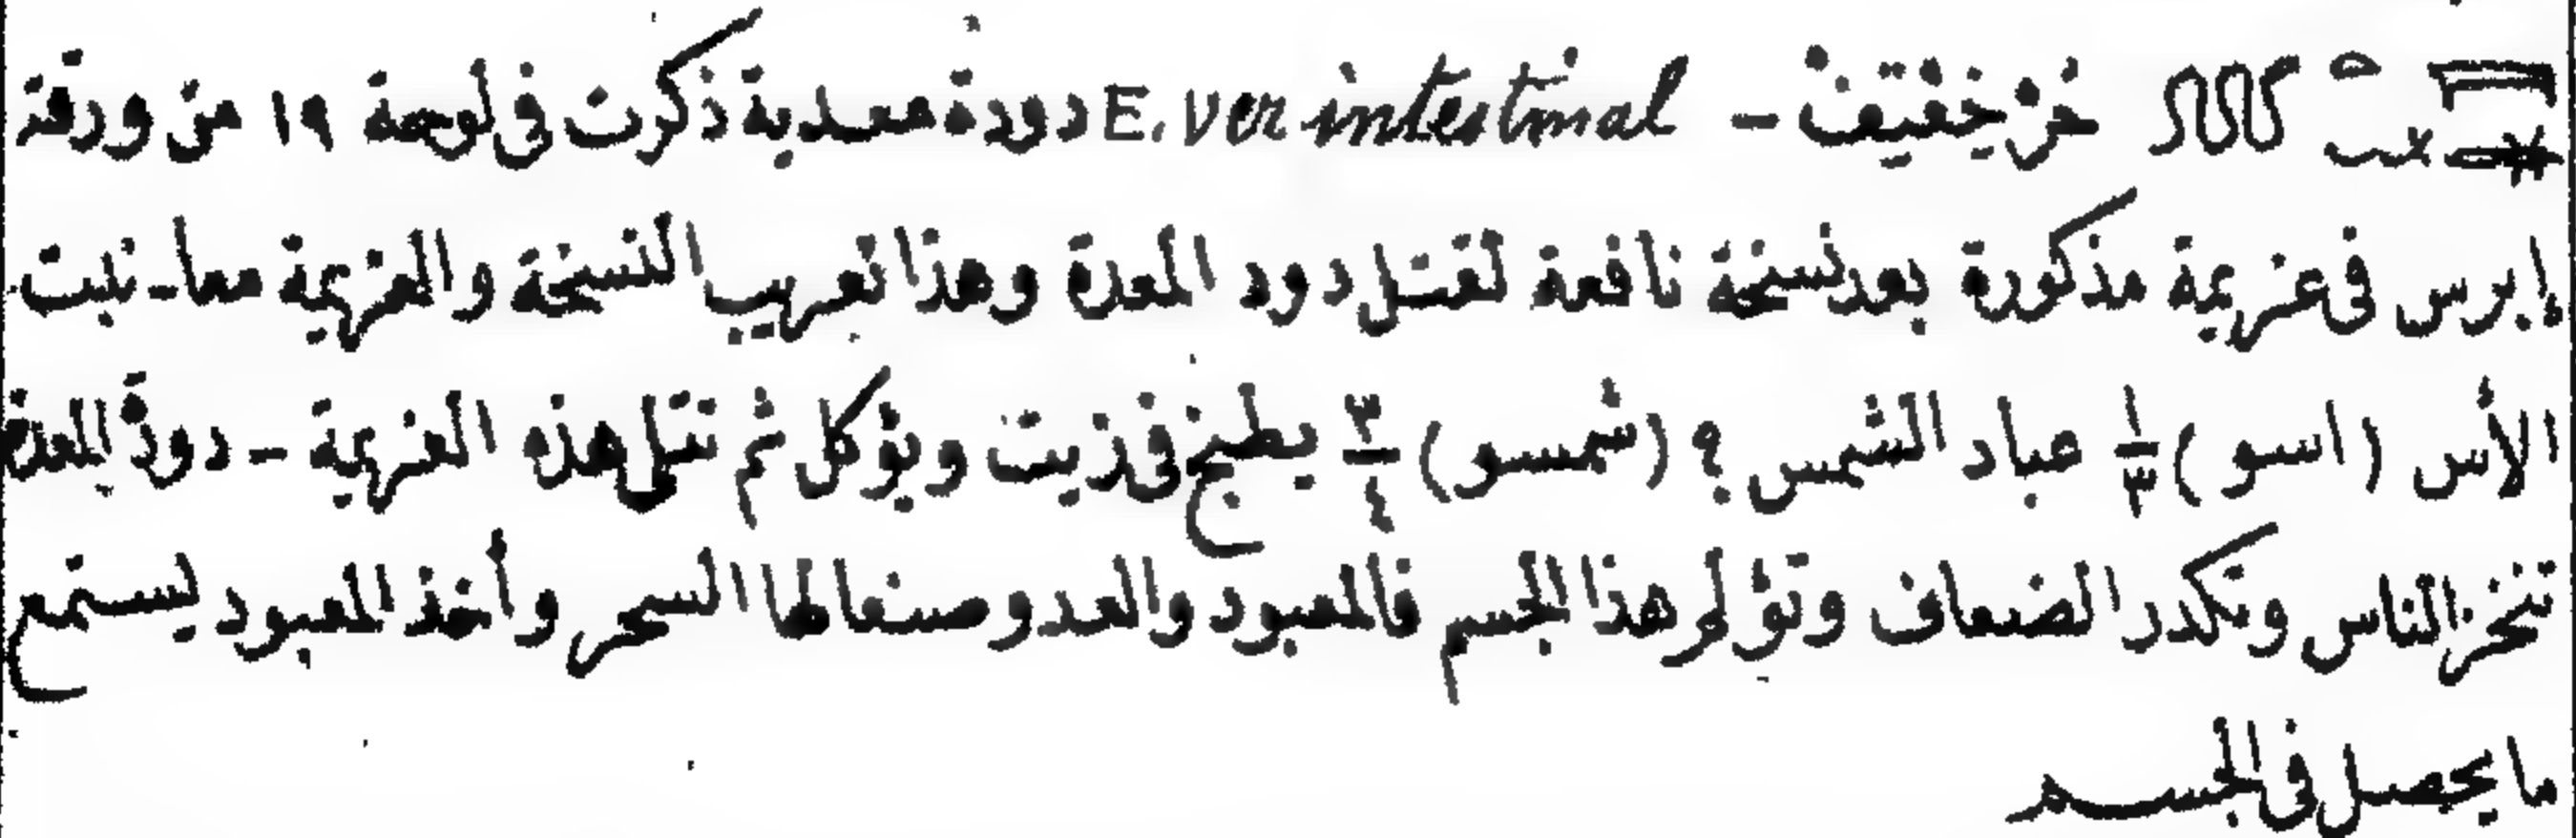 خُرْخِغْتِفْ - E. Ver intestinal دودة معدية ذكرت فى لوحة ١٩ من ورقة
إبرس فى عزيمة مذكورة بعد نسخة نافعة لقتل دود المعدة وهذا تعريب النسخة والعزيمة معا - نبت
الأس (اسو) ١/٣ عباد الشمس ؟ (شمسو) ٣/٤ يطبخ فى زيت ويؤكل ثم تتل هذه العزيمة - دودة المعدة
تنخز الناس وتكدر الضعاف وتؤلم هذا الجسم فالمعبود والعدو صنعا لها السحر وأخذ المعبود ليستمع
ما يحصل فى الجسم